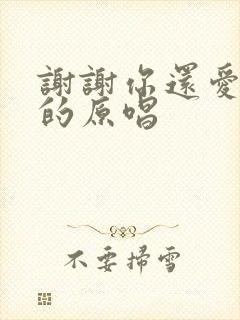 謝謝你還愛
的原唱
不要掃雪